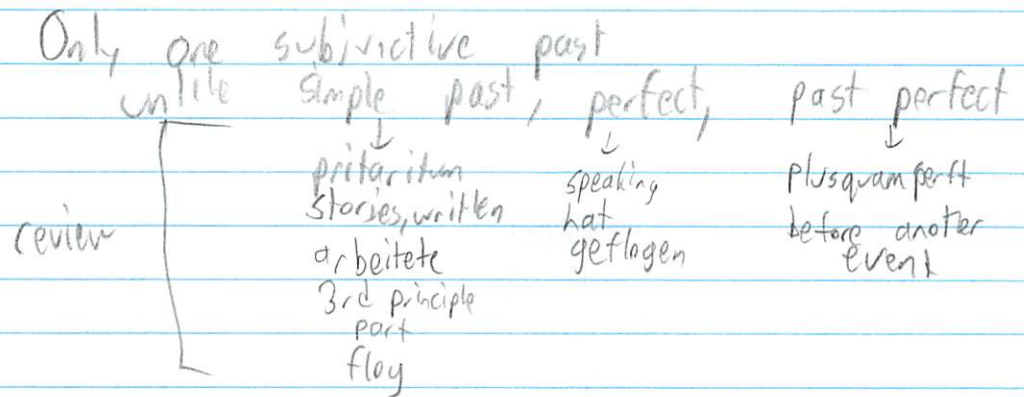 Only one subjunctive past
unlike simple past, perfect, past perfect
review
pritaritum
stories, written
arbeitete
3rd principle
part
flog
speaking
hat
geflogen
plusquamperft
before anoter
event